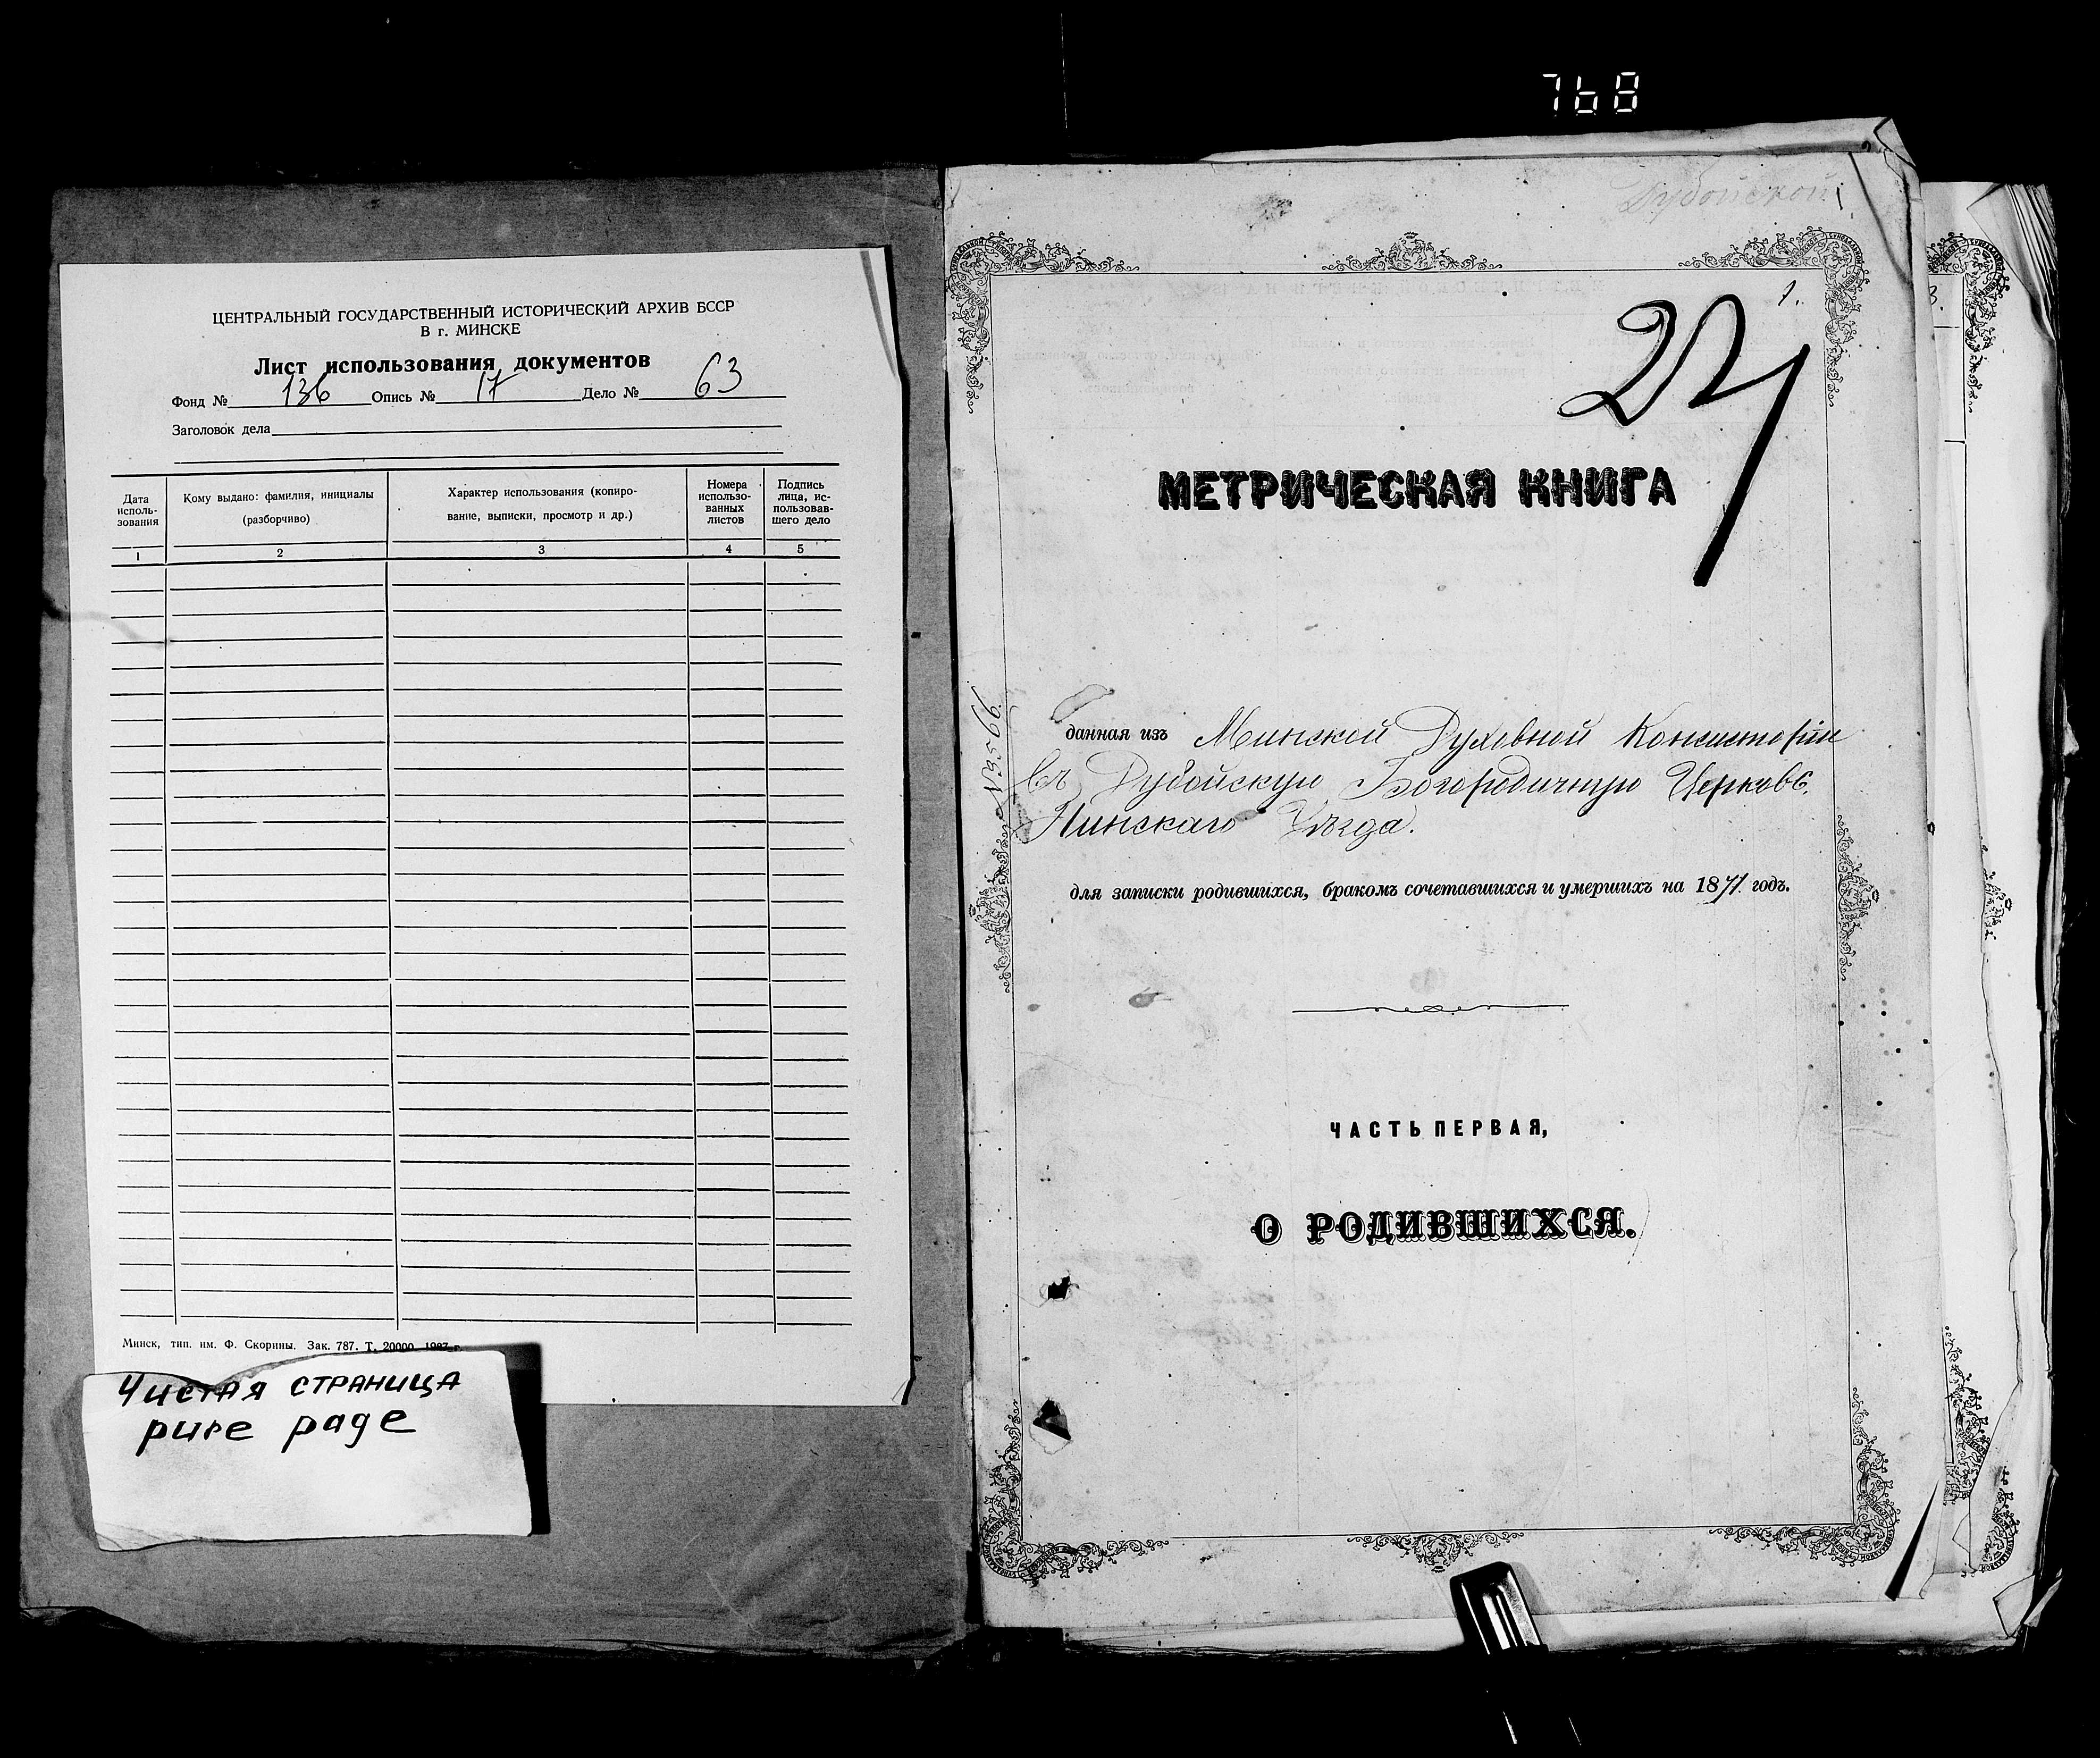 768
ЦЕНТРАЛЬНЫЙ ГОСУДАРСТВЕННЫЙ ИСТОРИЧЕСКИЙ АРХИВ БССР
В г. МИНСКЕ
Лист использования документов
Фонд № 136 Опись № 17 Дело № 63
Заголовок дела
Дата исполь-зования
Кому выдано: фамилия, инициалы
(разборчиво)
Характер использования (копиро-
вание, выписки, просмотр и др.)
Номера
использо-
ванных
листов
Подпись
лица, ис-
пользовав-
шего дело
1 2 3 4 5
Минск, тип. им. Ф. Скорины. Зак. 787. Т. 20000 1987 г.
Чистая страница
pure page
Дубойской
1.
27
МЕТРИЧЕСКАЯ КНИГА
№3566.
данная изъ Минской Духовной Консисторіи
въ Дубойскую Богородичную Церковь
Пинскаго Уѣзда.
для записки родившихся, бракомъ сочетавшихся и умершихъ на 1871 годъ.
ЧАСТЬ ПЕРВАЯ,
О РОДИВШИХСЯ.
3.